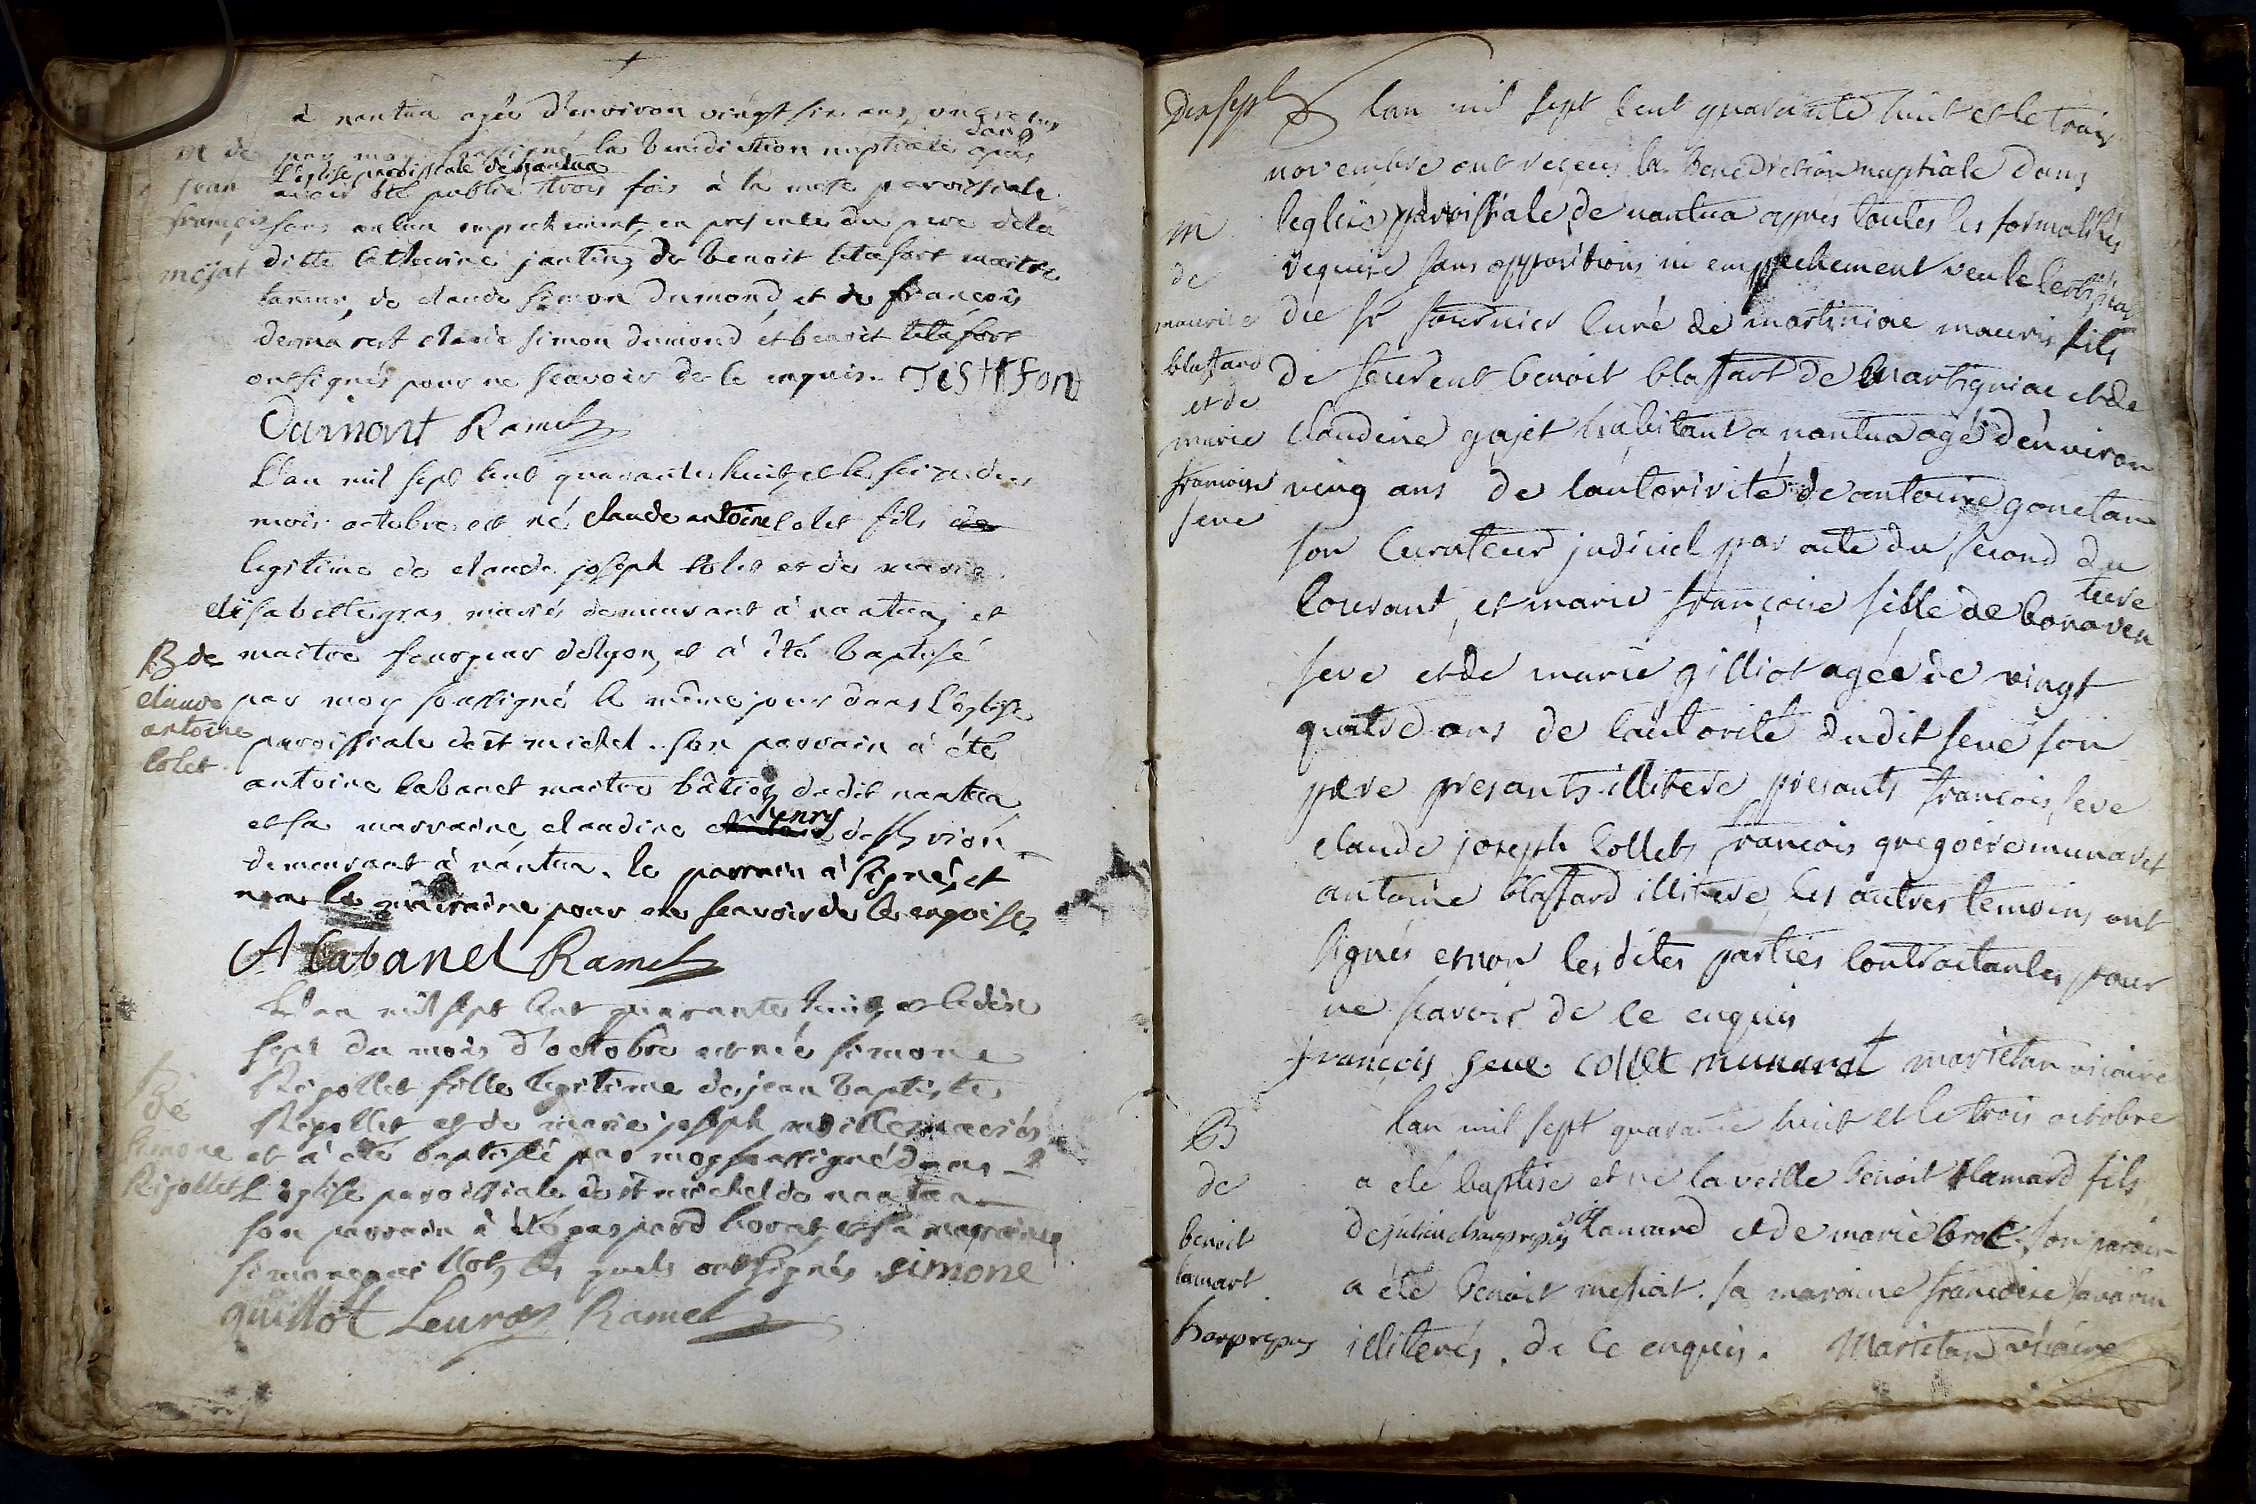 à nantua agée d'environ vingt six ans, ont reçus
par moy soussigné la benediction nuptiale dans
l'eglise paroissiale de nantua après
avoir été publié trois fois à la messe paroissiale
sans aucun empechement, en presence du pere de la
ditte catherine jantin, de benoit tétafort maitre
tanneur, de claude simon dumond, et de françois
claude simon dumond et benoit tétafort
ont signés pour ne sçavoir de ce enquis. TestEfort
Dumont Ramel
m de
jean
françois
mejat
L'an mil sept cent quarante huit et le
mois octobre est né claude antoine colet fils de
legitime de claude joseph colet et de marie
elisabette gras mariés demeurant à nantua, et
maitre de lyon, et à été baptisé
par moy soussigné le même jour dans l'eglise
paroissiale de st michel. son parrain à été
antoine cabanet maitre bâtier dudit nantua
et sa marraine, claudine henry
demeurant à nantua. le parrain à signé, et
non la mairaine pour ne scavoir de ce enquise.
A Cabanel Ramel
B de
claude
antoine
colet.
L'an mil sept cent quarante huit, et le dix
sept du mois d'octobre est née simone
Ripollet fille legitime de jean baptiste
Ripollet et de marie joseph mariés
et à été baptisée par moy soussigné dans
L'eglise paroissiale de st michel de nantua
son parrain à été gaspard et sa marraine
simone les quels ont signés simone
guillot Leuraz Ramel
B
de
simone
Ripollet
dix sept
lan mil sept cent quarante huit et le trois
novembre ont reçeus la benediction nuptiale dans
leglise paroissiale de nantua apprés toutes les formalités
requise sans oppositions ni emppechement veu le certificat
du sr fournier curé de martiniac mauris fils
de benoit blassart de martigniac et de
claudine gajet habitant a nantua agé d'environ
ving ans de lautorivité de antoine gouetan
son curateur judiciel par acte du second du
courant, et marie françoise fille de bonaven
ture
seve et de marie gilliot agée de vingt
quatre ans de lautorité dudit seve son
pere presants illitere presants francois seve
claude joseph collet, francois gregoire munaret
antoine blassard illitere, les autres temoins ont
signés et non les dites parties contractantes pour
ne scavoir de ce enquis
françois seve collet munaret marietan vicaire
m
de
maurice
blassard
et de
marie
francoise
seve
lan mil sept quarante huit et le trois octobre
a été baptise et ne la veille benoit lamard fils
de lamard et de marie brot. son parain
a été benoit messiat. sa maraine francoise savarin
illiterés. de ce enquis. Marietan vicaire
B
de
benoit
lamart